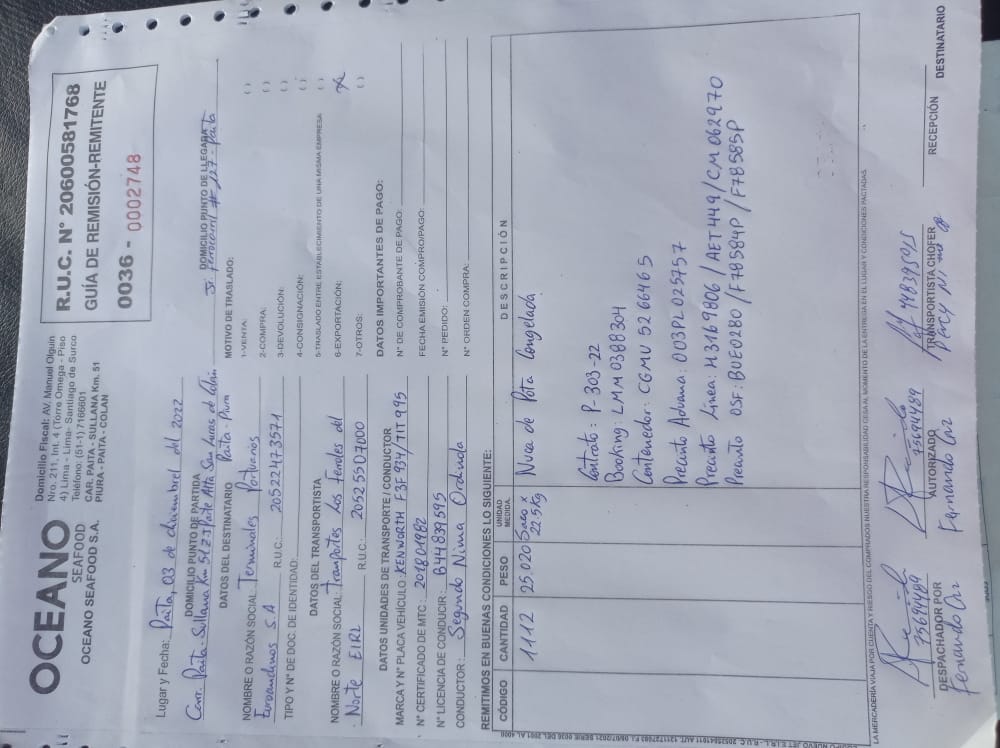 OCEANO
SEAFOOD
OCEANO SEAFOOD S.A.
Domicilio Fiscal: AV. Manuel Olguin
Nro. 211, Int. 4 (Torre Omega - Piso
4) Lima - Lima- Santiago de Surco
Teléfono: (51-1) 7166601
CAR. PAITA - SULLANA Km. 51
PIURA - PAITA - COLAN
R.U.C. N° 20600581768
GUÍA DE REMISIÓN-REMITENTE
0036 - 0002748
Lugar y Fecha: Paita, 03 de diciembre del 2022
DOMICILIO PUNTO DE PARTIDA
Carr. Paita - Sullana Km 51 Z.I Parte Alta San Lucas de Colán
DOMICILIO PUNTO DE LLEGARA
Jr. Ferrocarril # 127 - Paita
DATOS DEL DESTINATARIO Paita - Piura
NOMBRE O RAZÓN SOCIAL: Terminales Portuarios
Euroandinos S.A R.U.C.: 20522473571
TIPO Y N° DE DOC. DE IDENTIDAD:
DATOS DEL TRANSPORTISTA
NOMBRE O RAZÓN SOCIAL: Transportes Los Feroles del
Norte EIRL R.U.C.: 20525507000
DATOS UNIDADES DE TRANSPORTE / CONDUCTOR
MARCA Y N° PLACA VEHÍCULO: KENWORTH F3F 934/TIT 995
N° CERTIFICADO DE MTC: 201801982
N° LICENCIA DE CONDUCIR: B44839595
CONDUCTOR: Segundo Nima Ordinola
MOTIVO DE TRASLADO:
1-VENTA: ( )
2-COMPRA: ( )
3-DEVOLUCIÓN: ( )
4-CONSIGNACIÓN: ( )
5-TRASLADO ENTRE ESTABLECIMIENTO DE UNA MISMA EMPRESA ( )
6-EXPORTACIÓN: (X)
7-OTROS: ( )
DATOS IMPORTANTES DE PAGO:
N° DE COMPROBANTE DE PAGO:
FECHA EMISIÓN COMPRO/PAGO:
N° PEDIDO:
N° ORDEN COMPRA:
REMITIMOS EN BUENAS CONDICIONES LO SIGUIENTE:
CÓDIGO CANTIDAD PESO UNIDAD MEDIDA DESCRIPCIÓN
1112 25.020 Saco x 22.5 Kg Nuca de Pota Congelada
Contrato: P-303-22
Booking: LMM0388304
Contenedor: CGMU 5266465
Precinto Aduana: 003PL025757
Precinto Linea: H3169806/AET449/CM062970
Precinto OSF: BUE0280/F78584P/F78585P
LA MERCADERÍA VIAJA POR CUENTA Y RIESGO DEL COMPRADOS NUESTRA RESPONSABILIDAD CESA AL MOMENTO DE LA ENTREGA EN EL LUGAR Y CONDICIONES PACTADAS
75694489
DESPACHADOR POR
Fernando Cruz
75694489
AUTORIZADO
Fernando Cruz
44839595
TRANSPORTISTA CHOFER
Percy Nima
RECEPCIÓN DESTINATARIO